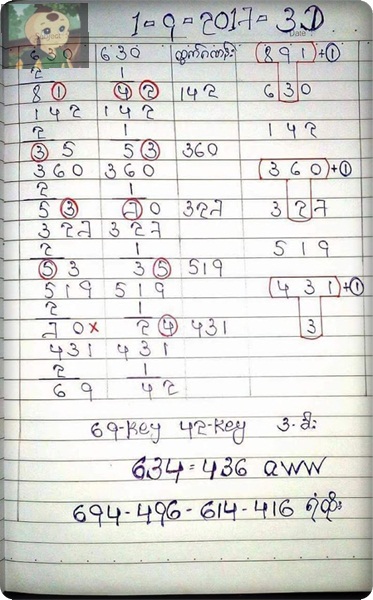 1 = 9 = 2017 = 3.D
630 630 ထွက်ဂဏန်း (891)+①
2 1
8① ④② 142 630
142 142
2 1 142
③5 5③ 360
360 360 (360)+①
2 1
5③ ⑦0 327 327
327 327
2 1 519
⑤3 3⑤ 519
519 519 (431)+①
2 1
70× 2④ 431 3
431 431
2 1
69 42
69-key 42-key 3-လုံး
634=436 aww
694-496-614-416